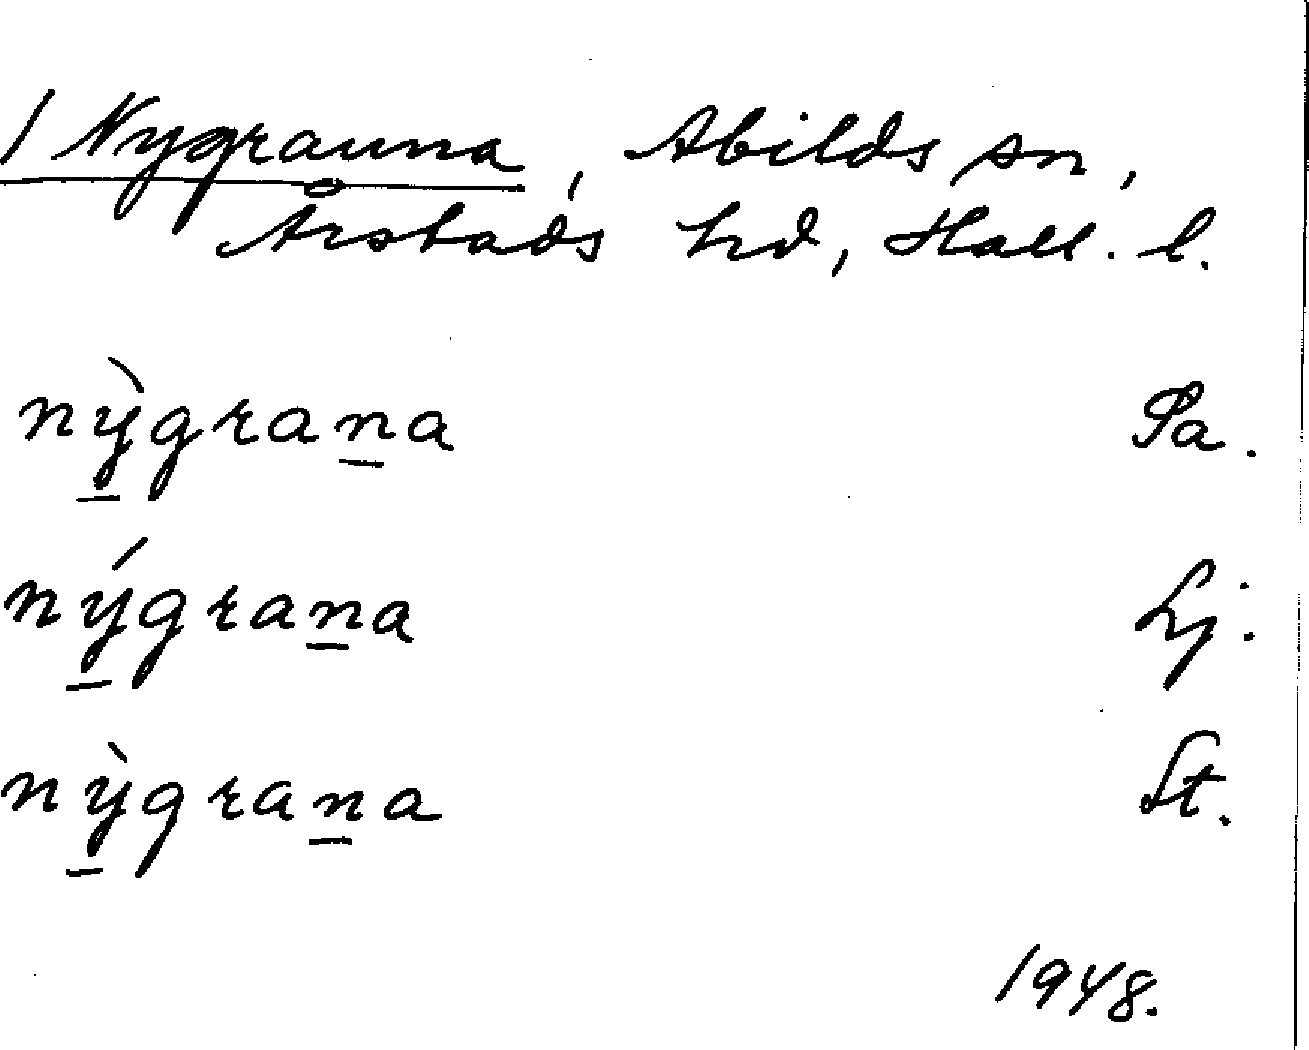 1 Nygrauna, Abilds sn,
Årstads hd, Hall. l.
nỳgrana Sa.
nýgrana Lj.
nỳgrana St.
1948.